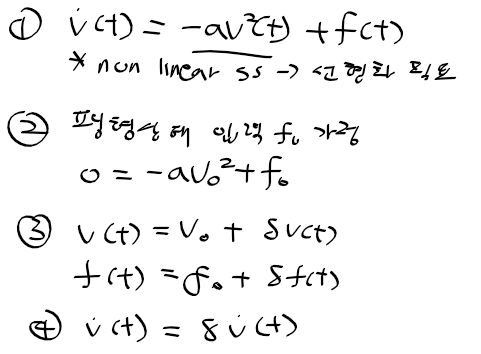 ① v̇(t) = -av²(t) + f(t)
* non linear ss → 선형화 필요
② 평형상태 입력 f₀ 가정
0 = -av₀² + f₀
③ v(t) = v₀ + δv(t)
f(t) = f₀ + δf(t)
④ v̇(t) = δv̇(t)